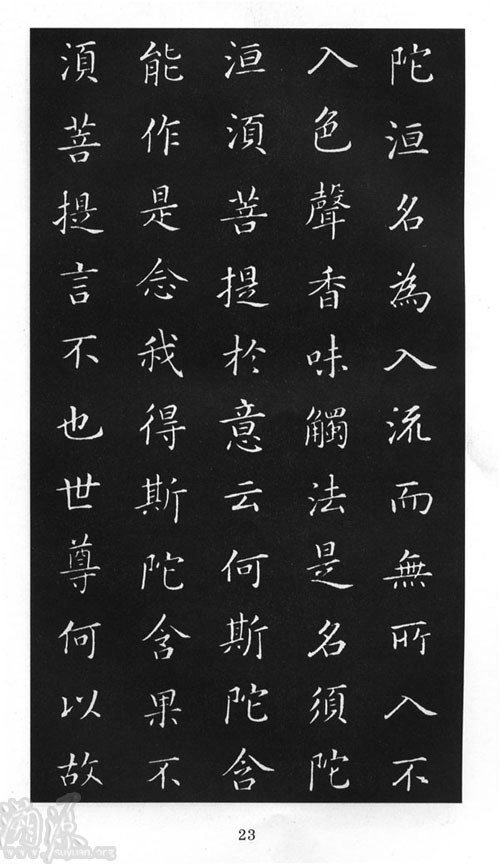 陀洹名為入流而無所入不
入色聲香味觸法是名須陀
洹湏菩提於意云何斯陀含
能作是念我得斯陀含果不
湏菩提言不也世尊何以故
23
溯源
www.suyuan.org